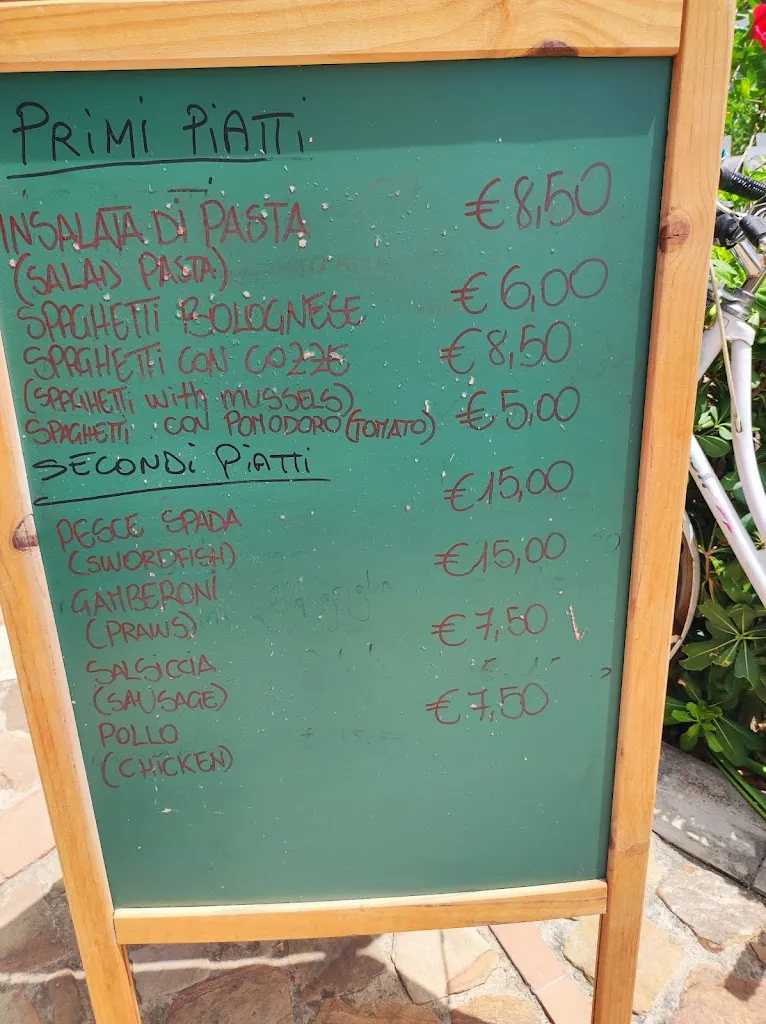 PRIMI PIATTI
INSALATA DI PASTA €8,50
(SALAD PASTA)
SPAGHETTI BOLOGNESE €6,00
SPAGHETTI CON COZZE €8,50
(SPAGHETTI WITH MUSSELS)
SPAGHETTI CON POMODORO (TOMATO) €5,00
SECONDI PIATTI
PESCE SPADA €15,00
(SWORDFISH)
GAMBERONI €15,00
(PRAWS)
SALSICCIA €7,50
(SAUSAGE)
POLLO €7,50
(CHICKEN)